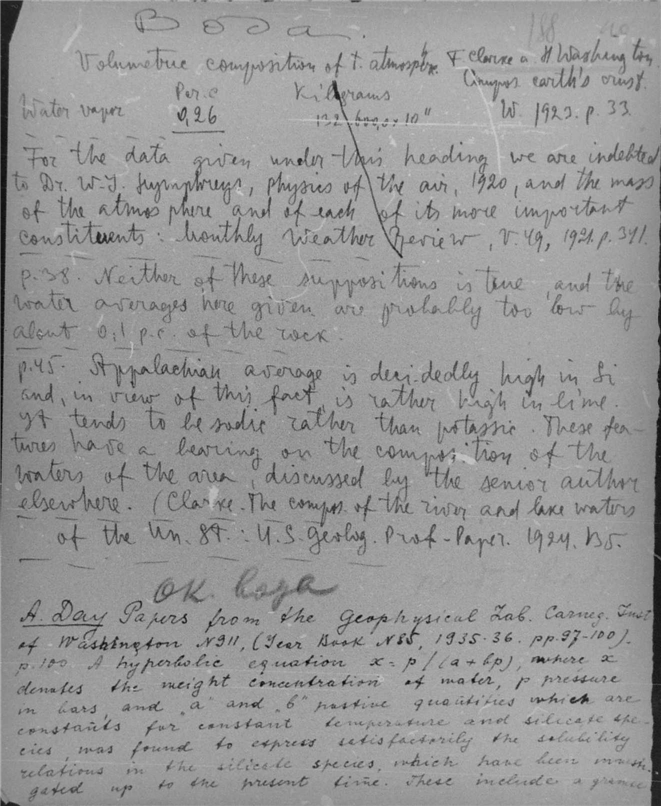 Вода.
188
Volumetric composition of t. atmosph. F. Clarke a. H Washington.
Compos earth's crust.
Per. c Kilograms W. 1923. p. 33.
Water vapor 0,26
For the data given under this heading we are indebted
to Dr. W. J. Humphreys, physics of the air, 1920, and the mass
of the atmosphere and of each of its more important
constituents: Monthly Weather Review, V. 49, 1921. p. 341.
p. 38. Neither of these suppositions is true, and the
water averages here given are probably too low by
about 0,1 p.c. of the rock.
p. 45. Appalachian average is decidedly high in Si
and, in view of this fact, is rather high in lime.
It tends to be sodic rather than potassic. These fea-
tures have a bearing on the composition of the
waters of the area, discussed by the senior author
elsewhere. (Clarke. The compos. of the river and lake waters
of the Un. St.: U. S. Geolog. Prof-Paper. 1924. 135.
Ок. вода
A. Day Papers from the Geophysical Lab. Carneg. Inst
of Washington N 911, (Year Book N 35, 1935-36. pp. 97-100).
p. 100 A hyperbolic equation x = p/(a+bp), where x
denotes the weight concentration of water, p pressure
in bars, and "a" and "b" positive quantities which are
constants for constant temperature and silicate spe-
cies, was found to express satisfactorily the solubility
relations in the silicate species, which have been investi-
gated up to the present time. These include a